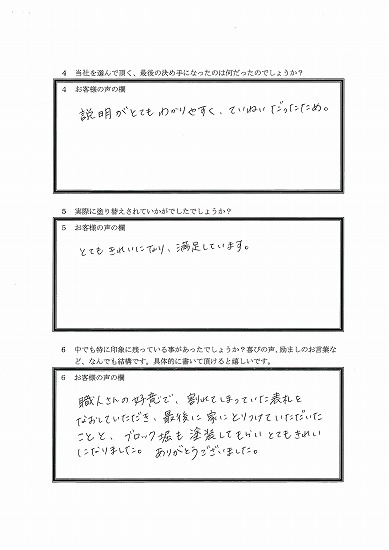 4　当社を選んで頂く、最後の決め手になったのは何だったのでしょうか？
4　お客様の声の欄
説明がとてもわかりやすく、ていねいだったため。
5　実際に塗り替えされていかがでしたでしょうか？
5　お客様の声の欄
とてもきれいになり、満足しています。
6　中でも特に印象に残っている事があったでしょうか？喜びの声、励ましのお言葉な
ど、なんでも結構です。具体的に書いて頂けると嬉しいです。
6　お客様の声の欄
職人さんの好意で、割れてしまっていた表札を
なおしていただき、最後に家にとりつけていただいた
ことと、ブロック塀も塗装してもらいとてもきれい
になりました。ありがとうございました。